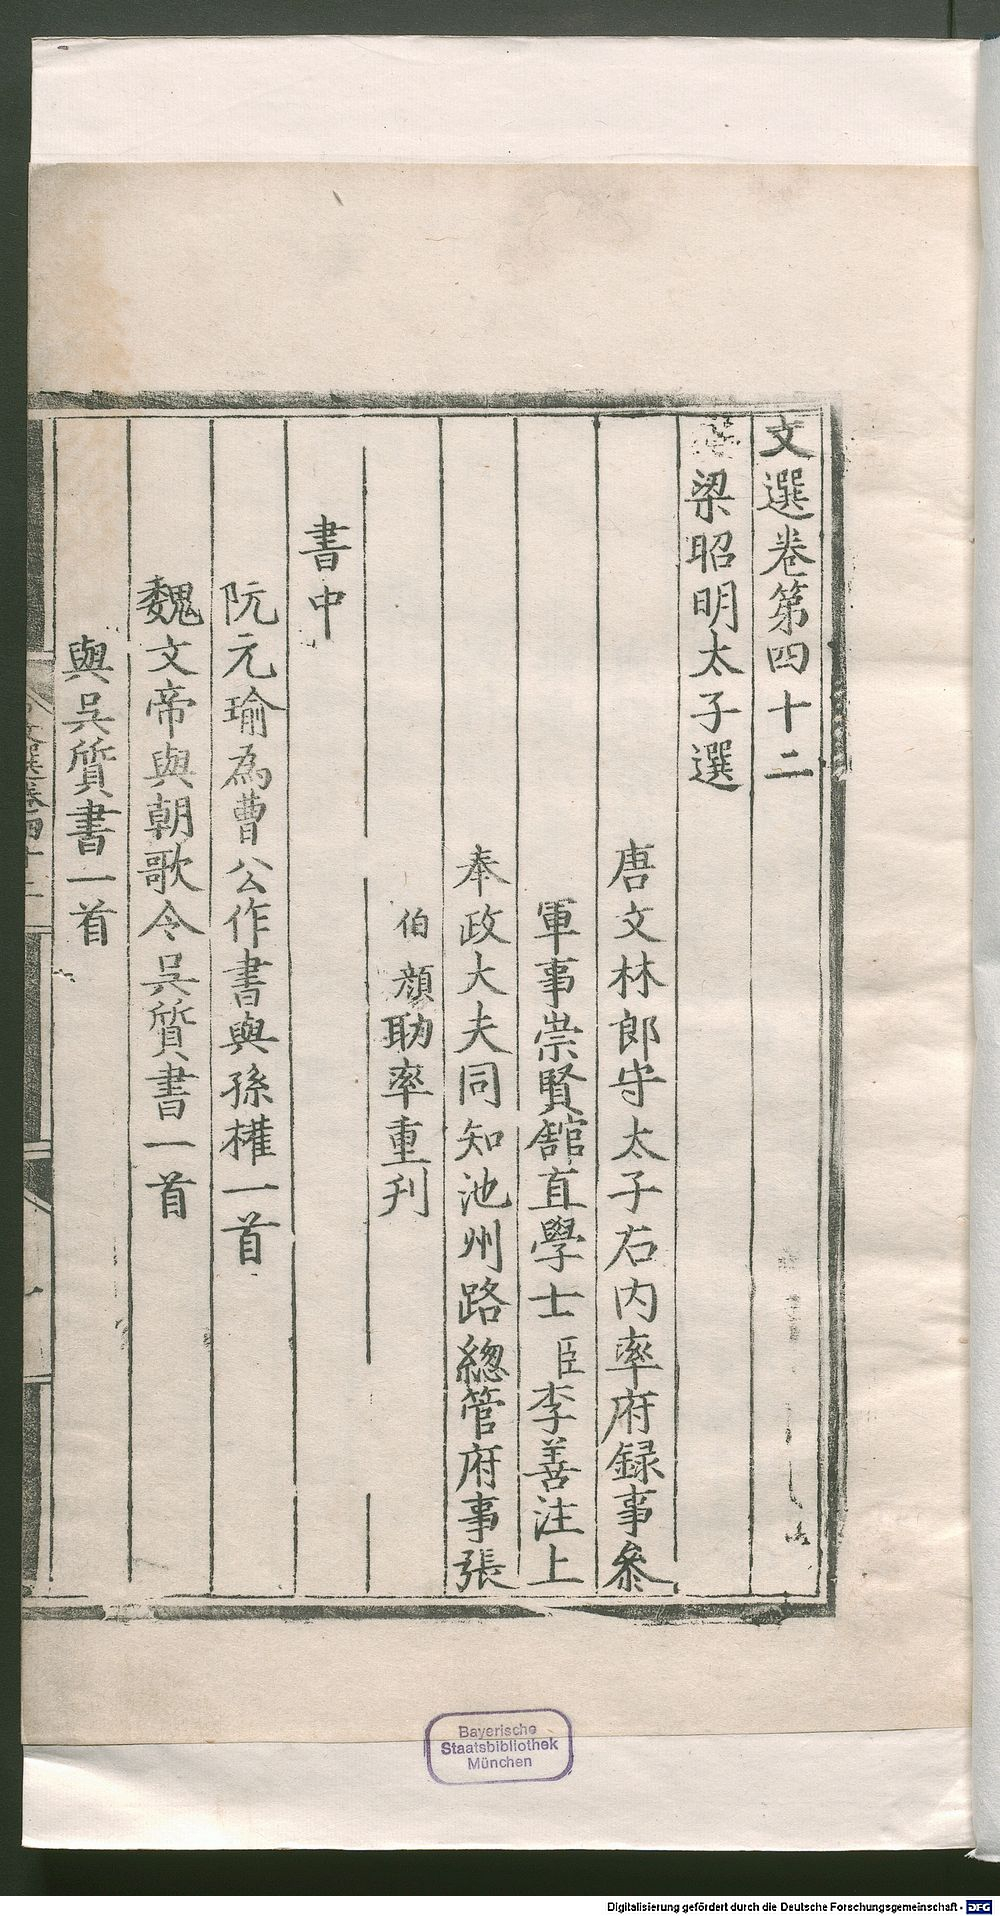 文選卷第四十二
梁昭明太子選
唐文林郎守太子右内率府録事叅
軍事崇賢館直學士臣李善注上
奉政大夫同知池州路緫管府事張
伯顔助率重刋
書中
阮元瑜為曹公作書與孫權一首
魏文帝與朝歌令吳質書一首
與吳質書一首
文選卷四十二
Bayerische
Staatsbibliothek
München
Digitalisierung gefördert durch die Deutsche Forschungsgemeinschaft - DFG